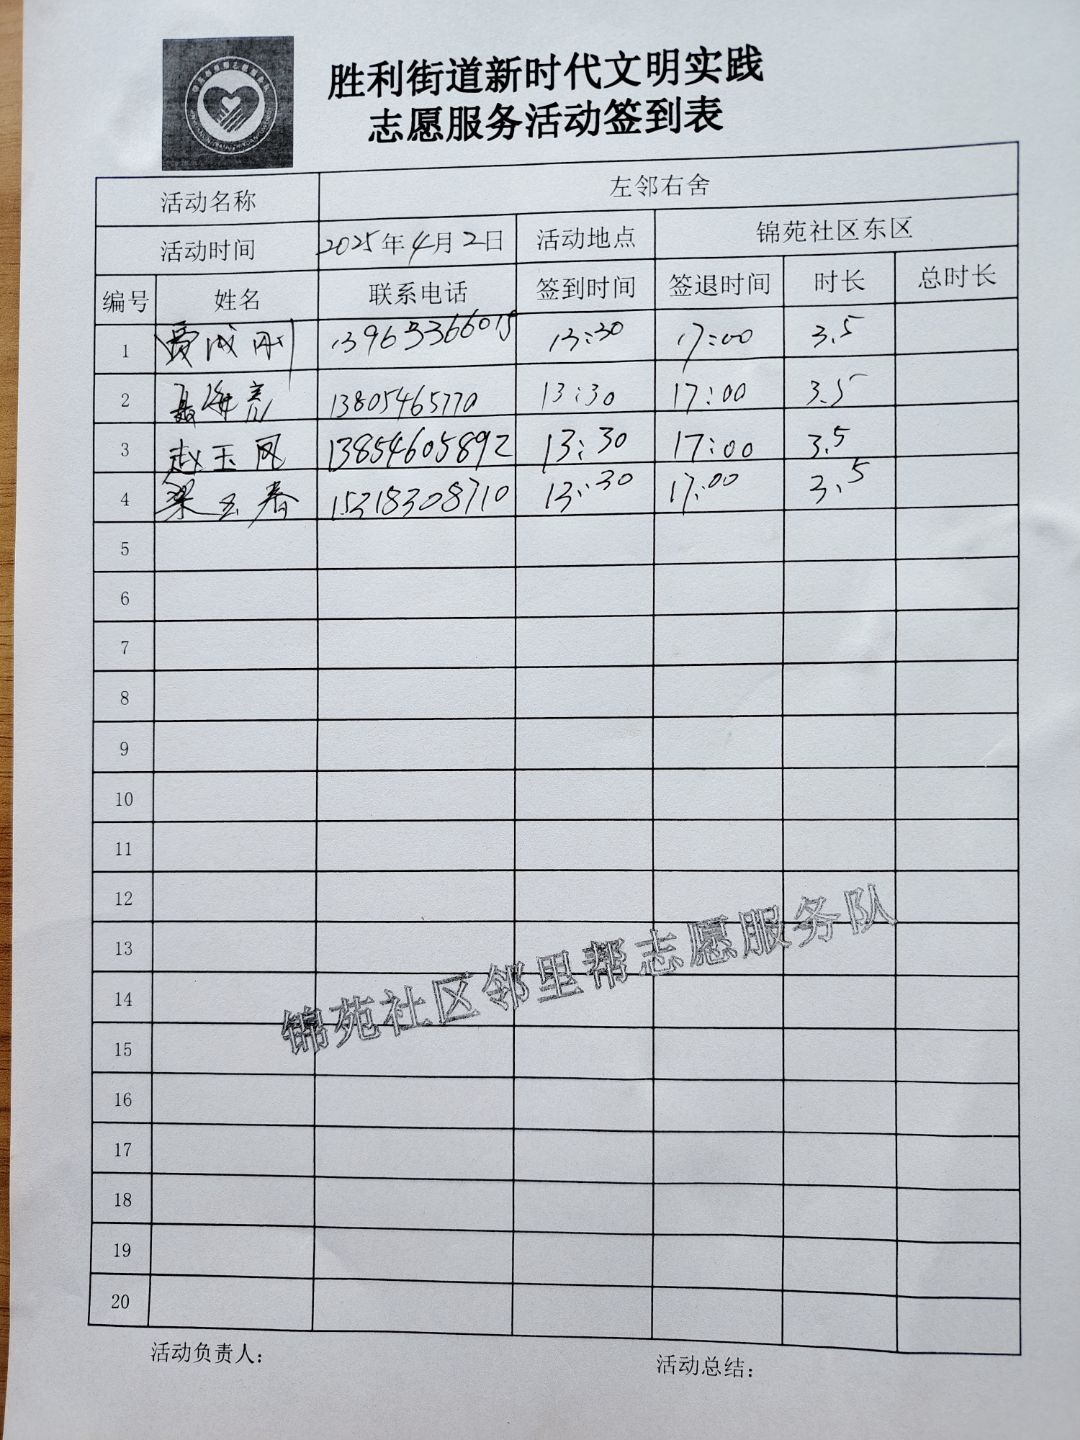 胜利街道新时代文明实践
志愿服务活动签到表
活动名称 左邻右舍
活动时间 2025年4月2日 活动地点 锦苑社区东区
编号 姓名 联系电话 签到时间 签退时间 时长 总时长
1 贾成刚 13963366015 13:30 17:00 3.5
2 聂海亮 13805465770 13:30 17:00 3.5
3 赵玉凤 13854605892 13:30 17:00 3.5
4 梁玉春 15318308710 13:30 17:00 3.5
5
6
7
8
9
10
11
12
13
14
15
16
17
18
19
20
锦苑社区邻里帮志愿服务队
活动负责人: 活动总结: